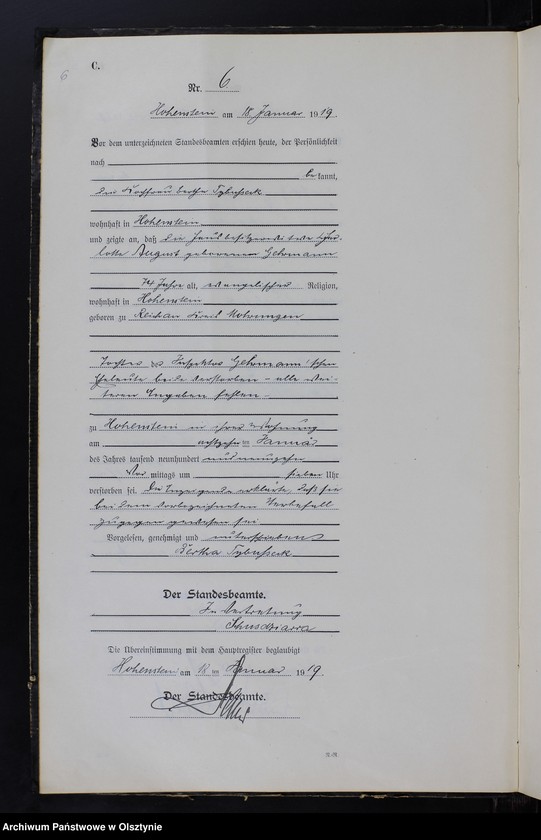 6
C.
Nr. 6
Hohenstein am 18 Januar 1919.
Vor dem unterzeichneten Standesbeamten erschien heute, der Persönlichkeit
nach
bekannt,
die Bertha Tybussek
wohnhaft in Hohenstein
und zeigte an, daß die Hausbesitzerwitwe Char-
lotte August geborenen Gehrmann
74 Jahre alt, evangelischer Religion,
wohnhaft in Hohenstein
geboren zu Reichau Kreis Mohrungen
Tochter des Inspektor Gehrmann'schen
Eheleute beide verstorben - alle wei-
teren Angaben fehlen -
zu Hohenstein in ihrer Wohnung
am achtzehnten Januar
des Jahres tausend neunhundert und neunzehn
Vor mittags um sieben Uhr
verstorben sei. Die Anzeigende erklärte, daß sie
bei dem vorbezeichneten Sterbefall
zugegen gewesen sei
Vorgelesen, genehmigt und unterschrieben
Bertha Tybussek
Der Standesbeamte.
In Vertretung
Schusdziarra
Die Übereinstimmung mit dem Hauptregister beglaubigt
Hohenstein am 18 ten Januar 1919.
Der Standesbeamte.
Archiwum Państwowe w Olsztynie